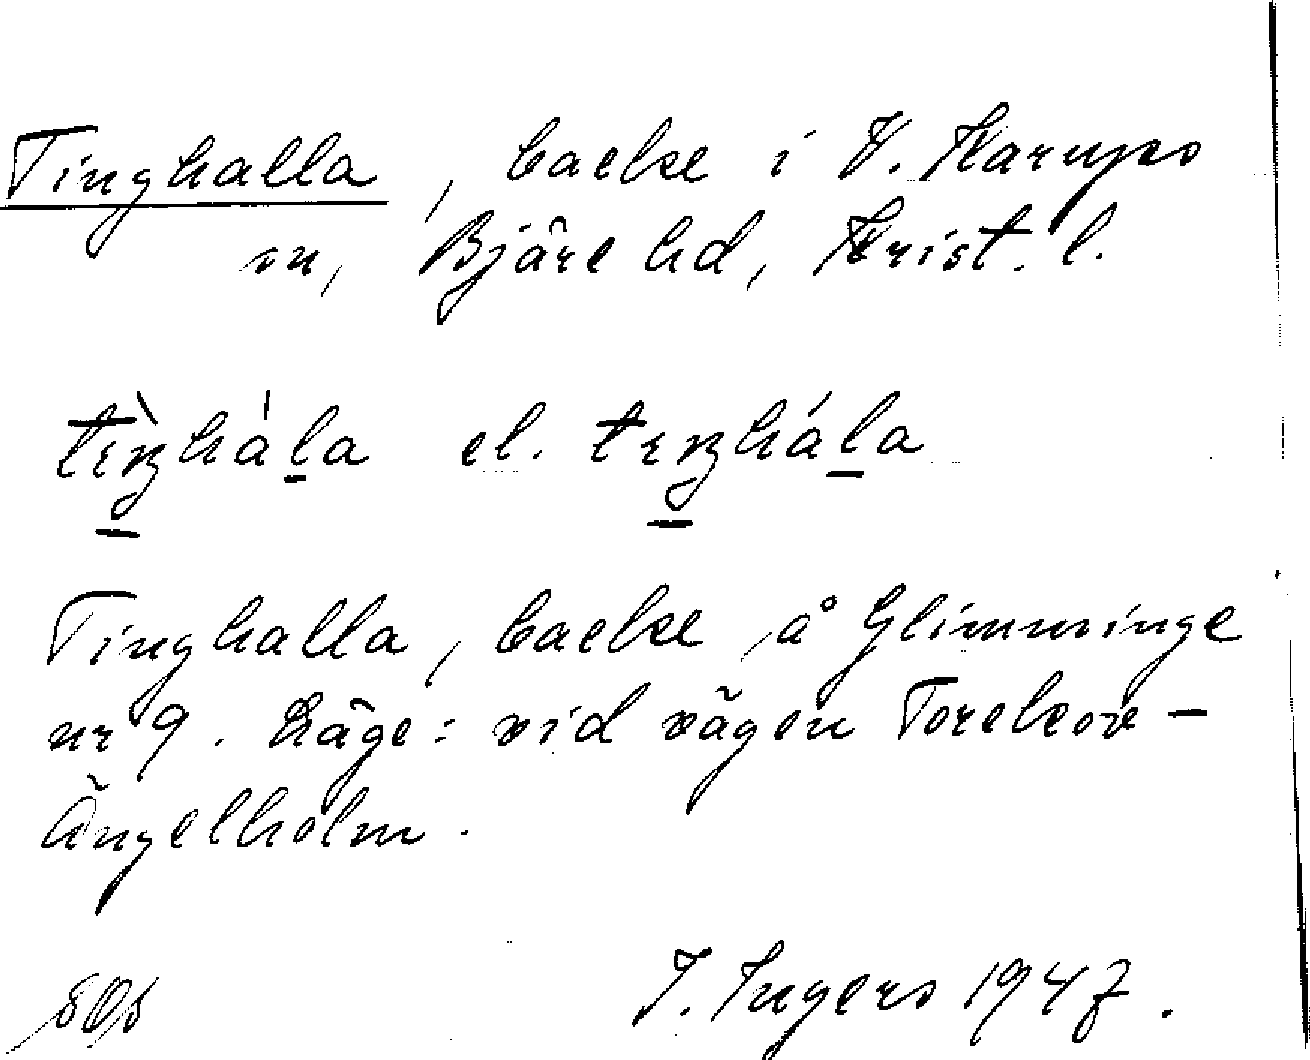 Tinghalla, backe i V. Karups
sn, Bjäre hd, Krist. l.
tìŋhàla el. tıŋhála
Tinghalla, backe å Glimminge
nr 9. Läge: vid vägen Torekov -
Ängelholm.
I. Ingers 1947.